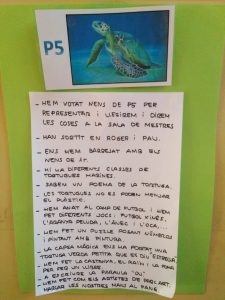 P5
- HEM VOTAT NENS DE P5 PER
REPRESENTAR I LLEGIREM I DIREM
LES COSES A LA SALA DE MESTRES
- HAN SORTIT EN ROGER I PAU.
- ENS HEM BARREJAT AMB ELS
NENS DE
- HI HA DIFERENTS CLASSES DE
TORTUGUES MARINES.
- SABEM UN POEMA DE LA TORTUGA.
LES TORTUGUES NO ES PODEN MENJAR
EL PLÀSTIC.
- HEM ANAT AL CAMP DE FUTBOL I HEM
FET DIFERENTS JOCS: FUTBOL,
L'ARANYA PELUDA, L'ÀNEC I L'OCA,...
- HEM FET UN PUZZLE POSANT NÚMEROS
I PINTANT AMB PINTURA.
- LA CAPSA MÀGICA ENS HA PORTAT UNA
TORTUGA VERDA PETITA QUE ES DIU
- HEM FET LA CASTANYA, EL RAÏM I LA POMA
PER FER UN LLIBRE
- A ESCRIURE LA PARAULA "OU"
- HEM FET COM ELS ARTISTES DE
MARCAR LES NOSTRES MANS AL FANG